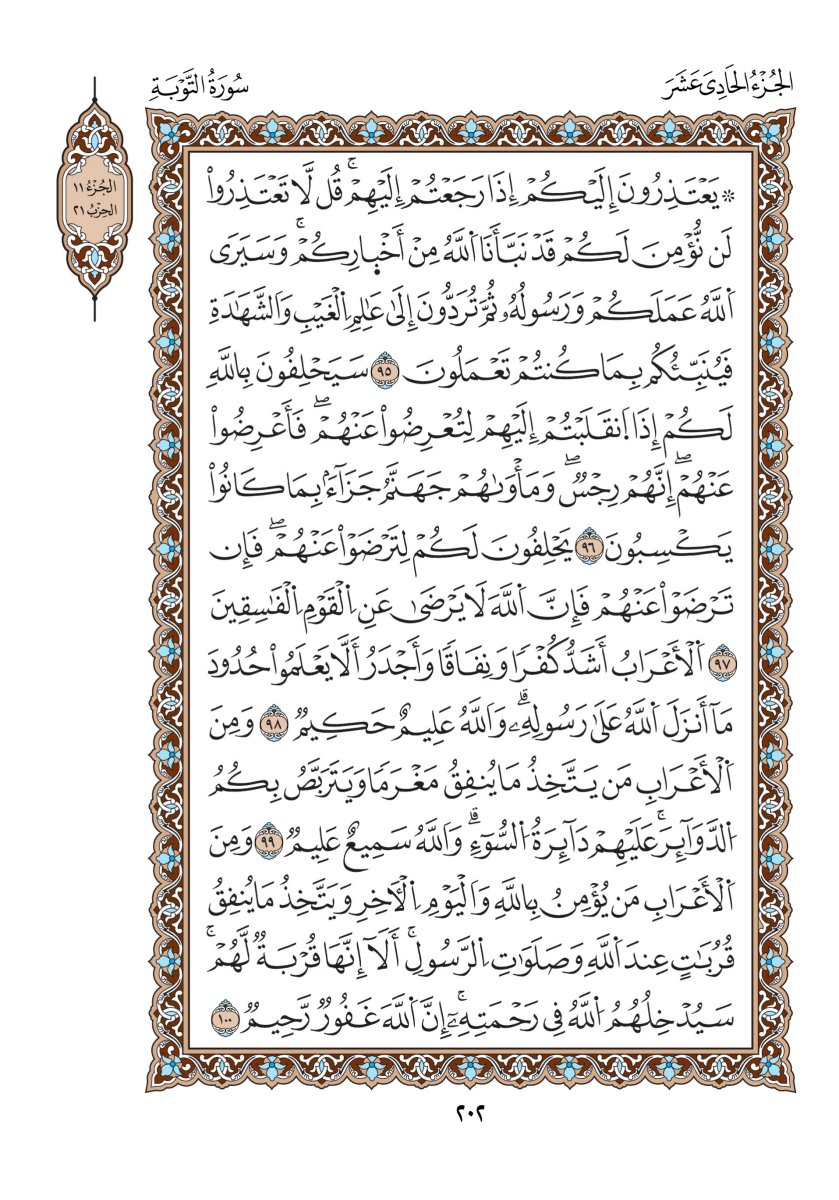 الجُزْءُ الحَادِىَ عَشَرَ
سُورَةُ التَّوْبَةِ
الجُزْءُ ١١
الحِزْبُ ٢١
۞ يَعْتَذِرُونَ إِلَيْكُمْ إِذَا رَجَعْتُمْ إِلَيْهِمْۚ قُل لَّا تَعْتَذِرُواْ
لَن نُّؤْمِنَ لَكُمْ قَدْ نَبَّأَنَا اَللَّهُ مِنْ أَخْبِارِكُمْۚ وَسَيَرَى
اَللَّهُ عَمَلَكُمْ وَرَسُولُهُۥ ثُمَّ تُرَدُّونَ إِلَىٰ عَٰلِمِ اِلْغَيْبِ وَالشَّهَٰدَةِ
فَيُنَبِّئُكُم بِمَا كُنتُمْ تَعْمَلُونَ ٩٥ سَيَحْلِفُونَ بِاللَّهِ
لَكُمْ إِذَا اَنقَلَبْتُمْ إِلَيْهِمْ لِتُعْرِضُواْ عَنْهُمْۖ فَأَعْرِضُواْ
عَنْهُمْۖ إِنَّهُمْ رِجْسٞۖ وَمَأْوَىٰهُمْ جَهَنَّمُ جَزَآءَۢ بِمَا كَانُواْ
يَكْسِبُونَ ٩٦ يَحْلِفُونَ لَكُمْ لِتَرْضَوْاْ عَنْهُمْۖ فَإِن
تَرْضَوْاْ عَنْهُمْ فَإِنَّ اَللَّهَ لَا يَرْضَىٰ عَنِ اِلْقَوْمِ اِلْفَٰسِقِينَ
٩٧ اَلْأَعْرَابُ أَشَدُّ كُفْرٗا وَنِفَاقٗا وَأَجْدَرُ أَلَّا يَعْلَمُواْ حُدُودَ
مَآ أَنزَلَ اَللَّهُ عَلَىٰ رَسُولِهِۦۗ وَاللَّهُ عَلِيمٌ حَكِيمٞ ٩٨ وَمِنَ
اَلْأَعْرَابِ مَن يَتَّخِذُ مَا يُنفِقُ مَغْرَمٗا وَيَتَرَبَّصُ بِكُمُ
اُلدَّوَآئِرَۚ عَلَيْهِمْ دَآئِرَةُ اُلسُّوٓءِۗ وَاللَّهُ سَمِيعٌ عَلِيمٞ ٩٩ وَمِنَ
اَلْأَعْرَابِ مَن يُؤْمِنُ بِاللَّهِ وَالْيَوْمِ اِلْأٓخِرِ وَيَتَّخِذُ مَا يُنفِقُ
قُرُبَٰتٍ عِندَ اَللَّهِ وَصَلَوَٰتِ اِلرَّسُولِۚ أَلَآ إِنَّهَا قُرْبَةٞ لَّهُمْۚ
سَيُدْخِلُهُمُ اُللَّهُ فِى رَحْمَتِهِۦٓۚ إِنَّ اَللَّهَ غَفُورٞ رَّحِيمٞ ١٠٠
٢٠٢